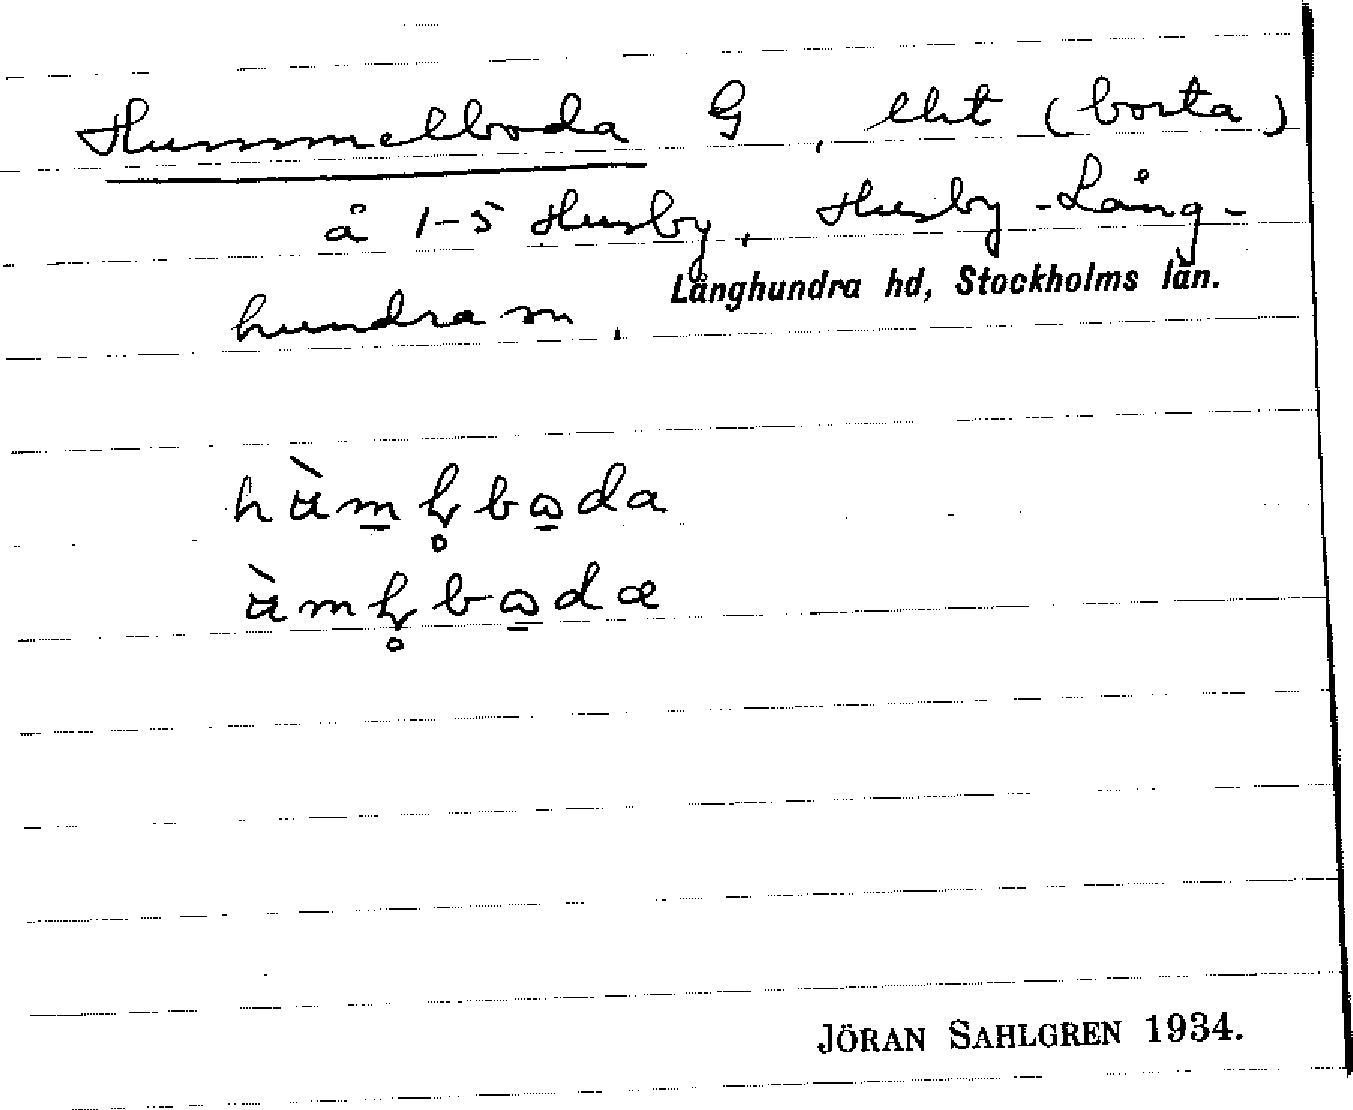 Hummelboda G, lht (borta)
å 1-5 Husby, Husby-Lång-
Långhundra hd, Stockholms län.
hundra sn.
JÖRAN SAHLGREN 1934.